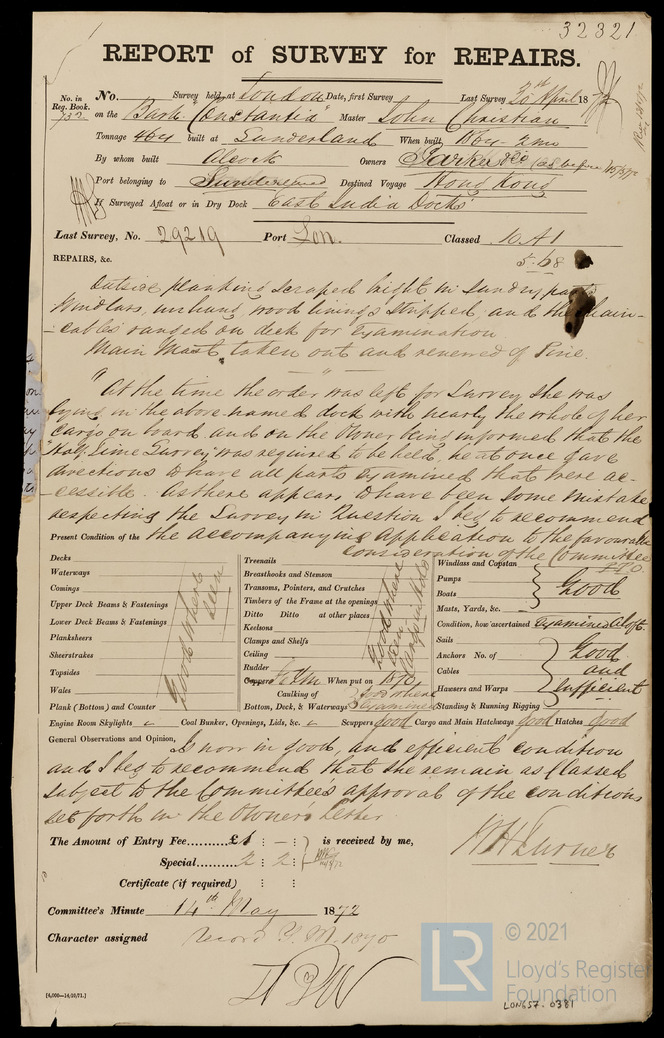 32321
REPORT of SURVEY for REPAIRS.
No. in Reg. Book. 732
No. Survey held at London Date, first Survey Last Survey 20th April 1872
on the Bark "Constantia" Master John Christian
Tonnage 464 built at Sunderland When built 1864 2mo
By whom built Alcock Owners Parker & Co (as before 15/5/72
Port belonging to Sunderland Destined Voyage Hong Kong
If Surveyed Afloat or in Dry Dock East India Docks
Last Survey, No. 29219 Port Lon. Classed 10 A1
5.68
REPAIRS, &c.
Outside planking scraped bright in sundry parts
Windlass, unhung, wood linings stripped, and the chain-
-cables ranged on deck for Examination
Main Mast taken out and renewed of Pine.
"At the time the order was left for Survey she was
lying in the above named dock with nearly the whole of her
cargo on board and on the Owner being informed that the
"Half Time Survey" was required to be held, he at once gave
directions to have all parts examined that were ac-
-cessible. As there appears to have been some mistake
respecting the Survey in Question I beg to recommend
the accompanying Application to the favourable
Consideration of the Committee
PTO
Present Condition of the
Decks
Waterways
Comings
Upper Deck Beams & Fastenings
Lower Deck Beams & Fastenings
Planksheers
Sheerstrakes
Topsides
Wales
Plank (Bottom) and Counter
Good where seen
Treenails
Breasthooks and Stemson
Transoms, Pointers, and Crutches
Timbers of the Frame at the openings
Ditto Ditto at other places
Keelsons
Clamps and Shelfs
Ceiling
Rudder
Good where seen
Copper When put on 1870
Caulking of Bottom, Deck, & Waterways Good where Examined
Windlass and Capstan
Pumps
Boats
Good
Masts, Yards, &c.
Condition, how ascertained Examined Aloft
Sails
Anchors No. of
Cables
Hawsers and Warps
Standing & Running Rigging
Good and Sufficient
Engine Room Skylights Coal Bunker, Openings, Lids, &c. Scuppers good Cargo and Main Hatchways good Hatches good
General Observations and Opinion, Is now in good, and efficient condition
and I beg to recommend that she remain as Classed
subject to the Committee's approval of the conditions
set forth in the Owner's Letter
The Amount of Entry Fee £1 : — : is received by me,
Special 2 : 2 :
Certificate (if required) : :
W H Turner
Committee's Minute 14th May 1872
Character assigned Record Y.M. 1870
[6,000—14/10/71.]
LR
© 2021
Lloyd's Register
Foundation
LON657-0381